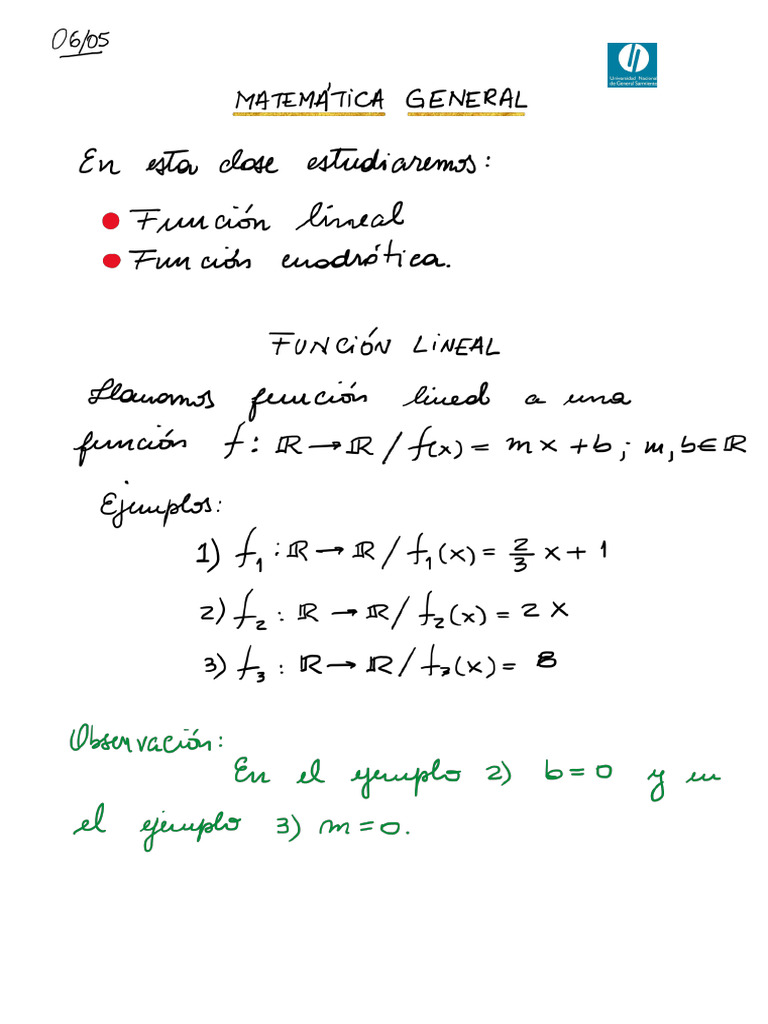 06/05
Universidad Nacional
de General Sarmiento
MATEMÁTICA GENERAL
En esta clase estudiaremos:
● Función lineal
● Función cuadrática.
FUNCIÓN LINEAL
Llamamos función lineal a una
función f: ℝ → ℝ / f(x) = mx + b; m, b ∈ ℝ
Ejemplos:
1) f₁ : ℝ → ℝ / f₁(x) = 2/3 x + 1
2) f₂ : ℝ → ℝ / f₂(x) = 2x
3) f₃ : ℝ → ℝ / f₃(x) = 8
Observación:
En el ejemplo 2) b = 0 y en
el ejemplo 3) m = 0.